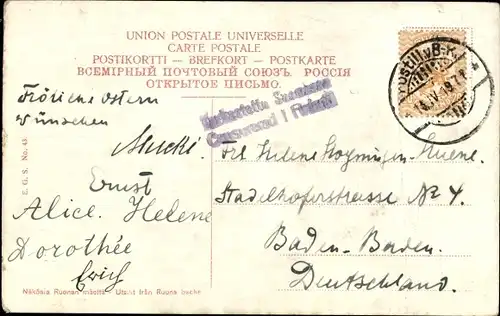 UNION POSTALE UNIVERSELLE
CARTE POSTALE
POSTIKORTTI — BREFKORT — POSTKARTE
ВСЕМІРНЫЙ ПОЧТОВЫЙ СОЮЗЪ. РОССІЯ
ОТКРЫТОЕ ПИСЬМО.
Fröhliche Ostern
wünschen
Ernst
Alice. Helene
Dorothée
Erich
Frl Helene
Stadelhoferstrasse No 4.
Baden-Baden.
Deutschland.
E. G. S. No. 43
Näköala Ruonan mäeltä - Utsikt från Ruona backe